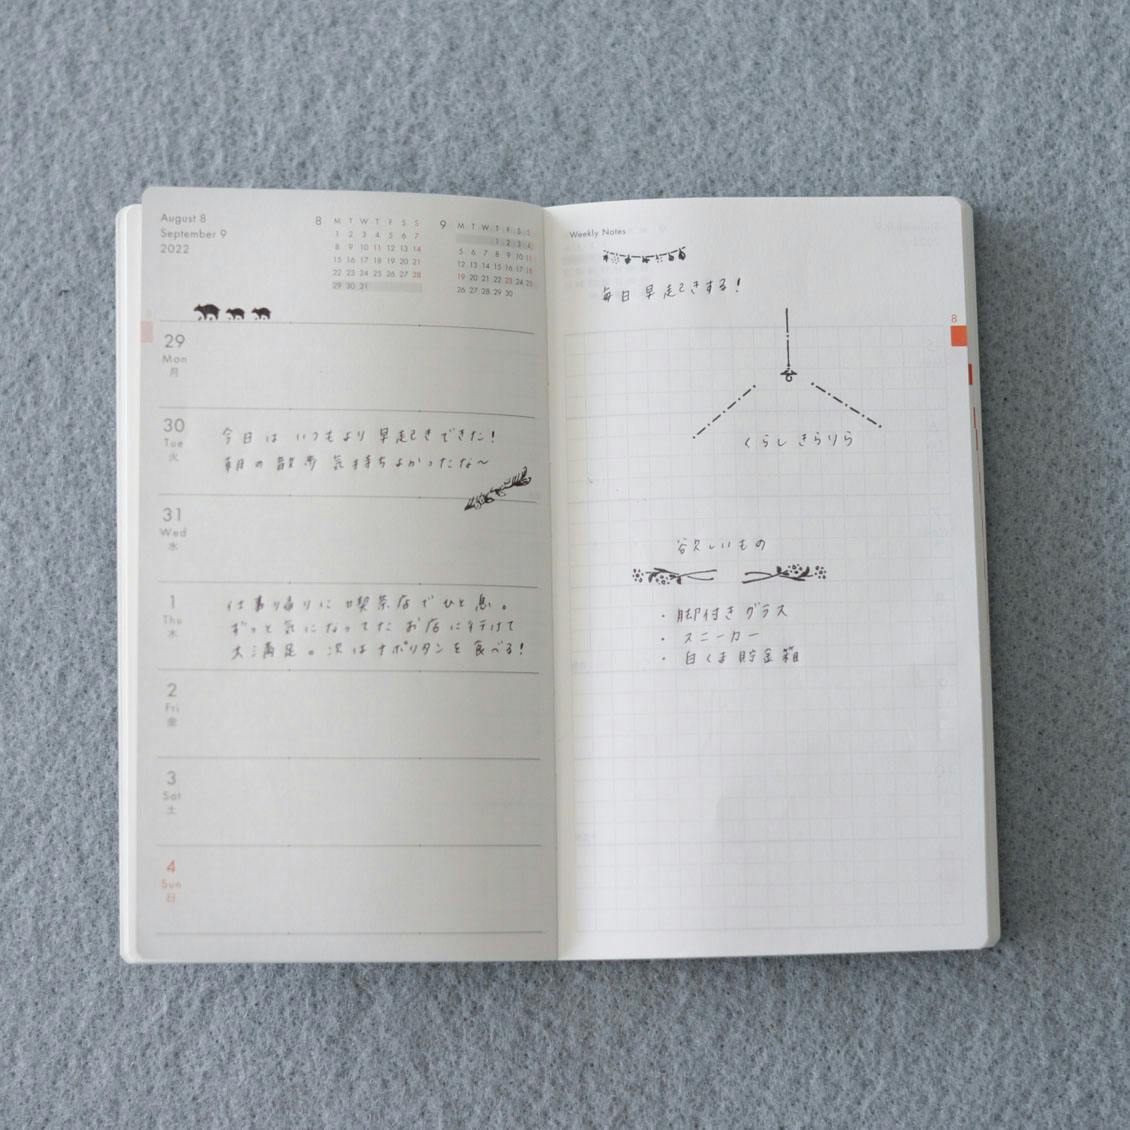 August 8
September 9
2022
8
M T W T F S S
1 2 3 4 5 6 7
8 9 10 11 12 13 14
15 16 17 18 19 20 21
22 23 24 25 26 27 28
29 30 31
9
M T W T F S S
1 2 3 4
5 6 7 8 9 10 11
12 13 14 15 16 17 18
19 20 21 22 23 24 25
26 27 28 29 30
29
Mon
月
30
Tue
火
今日は いつもより 早起きできた!
朝の散歩 気持ちよかったな〜
31
Wed
水
1
Thu
木
仕事帰りに喫茶店でひと息。
ずっと気になってたお店に行けて
大満足。次はナポリタンを食べる!
2
Fri
金
3
Sat
土
4
Sun
日
Weekly Notes
毎日早起きする!
8
くらしきらりら
欲しいもの
・脚付きグラス
・スニーカー
・白くま貯金箱